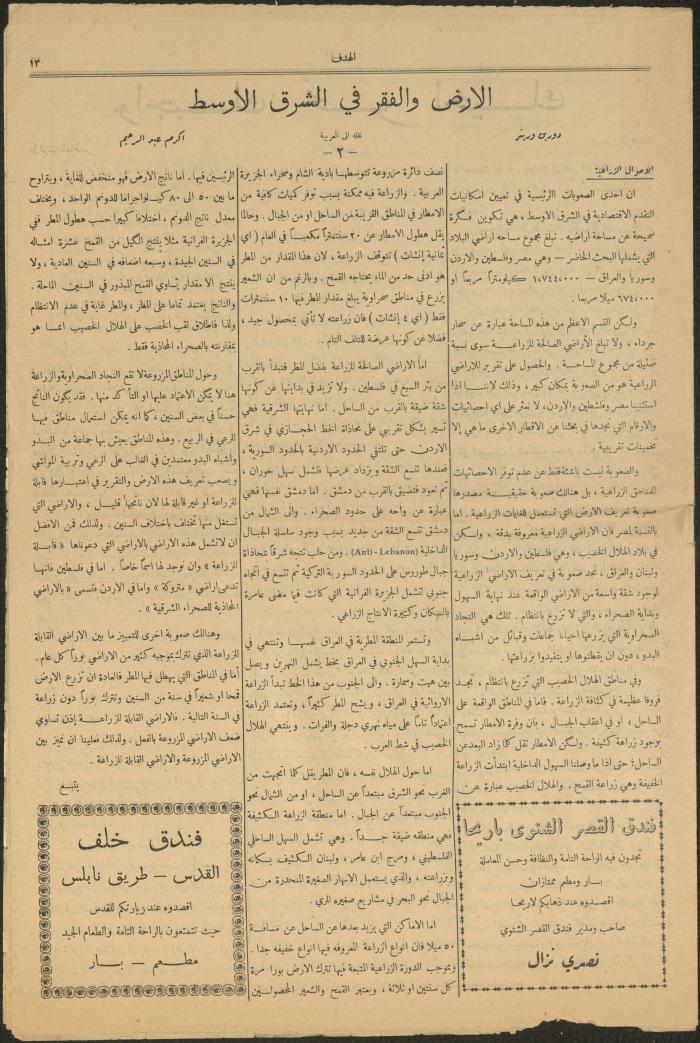 الهدف
١٣
الارض والفقر في الشرق الاوسط
دورين ورينر
نقله الى العربية
اكرم عبد الرحيم
— ٢ —
الاحوال الزراعية:
ان احدى الصعوبات الرئيسية في تعيين امكانيات
التقدم الاقتصادية في الشرق الاوسط، هي تكوين فكرة
صحيحة عن مساحة اراضيه. تبلغ مجموع مساحه اراضي البلاد
التي يشملها البحث الحاضر — وهي مصر وفلسطين والاردن
وسوريا والعراق — ١٠٧٤٤٠٠٠ كيلومتراً مربعاً او
٦٧٤٠٠٠ ميلا مربعا.
ولكن القسم الاعظم من هذه المساحة عبارة عن صحار
جرداء، ولا تبلغ الأراضي الصالحة للزراعة سوى نسبة
ضئيلة من مجموع المساحة. والحصول على تقرير للاراضي
الزراعية هو من الصعوبة بمكان كبير، وذلك لاننا اذا
استثنينا مصر وفلسطين والاردن، لا نعثر على اي احصائيات
والارقام التي نجدها في بحثنا عن الاقطار الاخرى ما هي إلا
تخمينات تقريبية.
والصعوبة ليست ناشئة فقط عن عدم توفر الاحصائيات
للمناطق الزراعية، بل هنالك صعوبة حقيقية مصدرها
صعوبة تعريف الارض التي تستعمل للغايات الزراعية. اما
بالنسبة لمصر فان الاراضي الزراعية معروفة بدقة، ولكن
في بلاد الهلال الخصيب، وهي فلسطين والاردن وسوريا
ولبنان والعراق، نجد صعوبة في تعريف الاراضي الزراعية
لوجود شقة واسعة من الاراضي الواقعة عند نهاية السهول
وبداية الصحراء، والتي لا تزرع بانتظام. تلك هي النجاد
الصحراوية التي يزرعها احيانا جماعات وقبائل من اشباه
البدو، دون ان يقطنوها او يتقيدوا بزراعتها.
وفي مناطق الهلال الخصيب التي تزرع بانتظام، نجد
فروقا عظيمة في كثافة الزراعة. فاما في المناطق الواقعة على
الساحل، او في اعقاب الجبال، فان وفرة الامطار تسمح
بوجود زراعة كثيفة. ولكن الامطار تقل كلما زاد البعد عن
الساحل؛ حتى اذا ما وصلنا السهول الداخلية ابتدأت الزراعة
الخفيفة وهي زراعة القمح. والهلال الخصيب عبارة عن
نصف دائرة مزروعة تتوسطها بادية الشام وصحراء الجزيرة
العربية. والزراعة فيه ممكنة بسبب توفر كميات كافية من
الامطار في المناطق القريبة من الساحل او من الجبال. وحالما
يقل هطول الامطار عن ٢٠ سنتمتراً مكعباً في العام (اي
ثمانية إنشات) تتوقف الزراعة، لان هذا المقدار من المطر
هو ادنى حد من الماء يحتاجه القمح. وبالرغم من ان الشعير
يزرع في مناطق صحراوية يبلغ مقدار المطر فيها ١٠ سنتمترات
فقط (اي ٤ إنشات) فان زراعته لا تأتي بمحصول جيد،
فضلا عن كونها عرضة للتلف التام.
اما الاراضي الصالحة للزراعة بفضل المطر فتبدأ بالقرب
من بئر السبع في فلسطين. ولا تزيد في بدايتها عن كونها
شقة ضيقة بالقرب من الساحل. اما نهايتها الشرقية فهي
تسير بشكل تقريبي على محاذاة الخط الحجازي في شرق
الاردن حتى تلتقي الحدود الاردنية بالحدود السورية،
فعندها تتسع الشقة ويزداد عرضها فتشمل سهل حوران،
ثم تعود فتضيق بالقرب من دمشق. اما دمشق نفسها فهي
عبارة عن واحة على حدود الصحراء. والى الشمال من
دمشق تتسع الشقة من جديد بسبب وجود سلسلة الجبال
الداخلية (Anti - Lebanon). ومن حاب تتجه شرقاً بمحاذاة
جبال طوروس على الحدود السورية التركية ثم تتسع في اتجاه
جنوبي لتشمل الجزيرة الفراتية التي كانت فيما مضى عامرة
بالسكان وكثيرة الانتاج الزراعي.
وتستمر المنطقة المطرية في العراق نفسها وتنتهي في
بداية السهل الجنوبي في العراق بخط يشمل النهرين ويصل
بين هيت وسمارة. والى الجنوب من هذا الخط تبدأ زراعة
الاروائية في العراق، ويشح المطر كثيراً، وتعتمد الزراعة
اعتماداً تاماً على مياه نهري دجلة والفرات. وينتهي الهلال
الخصيب في شط العرب.
اما حول الهلال نفسه، فان المطر يقل كلما اتجهت من
الغرب نحو الشرق مبتعداً عن الساحل، او من الشمال نحو
الجنوب مبتعداً عن الجبال. اما منطقة الزراعة الكثيفة
فهي منطقه ضيقة جداً. وهي تشمل السهل الساحلي
الفلسطيني، ومرج ابن عامر، ولبنان الكثيف بسكانه
وبزراعته، والذي يستعمل الانهار الصغيرة المنحدرة من
الجبال نحو البحر في مشاريع صغيره للري.
اما الاماكن التي يزيد بعدها عن الساحل عن مسافة
٥٠ ميلا فان انواع الزراعة المعروفه فيها انواع خفيفه جدا.
وبتوجب الدورة الزراعية المتبعة فيها تترك الارض بورا مرة
كل سنتين او ثلاثة، ويعتبر القمح والشعير المحصولين
الرئيسين فيها. اما ناتج الارض فهو منخفض للغاية، ويتراوح
ما بين ٥٠ الى ٨٠ كيلواجراما للدونم الواحد، ويختلف
معدل ناتج الدونم، اختلافا كبيرا حسب هطول المطر ففي
الجزيرة الفراتية مثلا ينتج الكيل من القمح عشرة امثاله
في السنين الجيدة، وسبعة اضعافه في السنين العادية، ولا
ينتج الا مقدار يُساوي القمح المبذور في السنين الماحلة.
والناتج يعتمد تماما على المطر، والمطر غاية في عدم الانتظام
ولذا فاطلاق لقب الخصب على الهلال الخصيب انما هو
بمقارنته بالصحراء المحاذية فقط.
وحول المناطق المزروعة لا تقع النجاد الصحراوية والزراعة
هنا لا يمكن الاعتماد عليها او التأكد منها. فقد يكون الناتج
حسناً في بعض السنين، كما انه يمكن استعمال مناطق فيها
للرعي في الربيع. وهذه المناطق يعيش بها جماعة من البدو
واشباه البدو معتمدين في الغالب على الرعي وتربية المواشي
ويصعب تعريف هذه الارض والتقرير في اعتبارها قابلة
للزراعة او غير قابلة لها لان ناتجها قليل، والاراضي التي
تستغل منها تختلف باختلاف السنين. ولذلك فمن الافضل
ان لا تشمل هذه الاراضي بالاراضي التي دعوناها «قابلة
للزراعة» وان نوجد لها اسماً خاصاً. اما في فلسطين فانها
تدعى اراضي «متروكة» واما في الاردن فتسمى «بالاراضي
المحاذية للصحراء الشرقية».
وهنالك صعوبة اخرى للتمييز ما بين الاراضي القابلة
للزراعة الذي تترك بموجبه كثير من الاراضي بوراً كل عام.
أما في المناطق التي يهطل فيها المطر فالعادة ان تزرع الارض
قمحا او شعيراً في سنة من السنين وتترك بوراً دون زراعة
في السنة التالية. فالاراضي القابلة للزراعة إذن تساوي
ضعف الاراضي المزروعة بالفعل. ولذلك فعلينا ان نميز بين
الاراضي المزروعة والاراضي القابلة للزراعة.
يتبع
فندق القصر الشتوى باريحا
تجدون فيه الراحة التامة والنظافة وحسن المعاملة
بار ومطعم ممتازان
اقصدوه عند ذهابكم لاريحا
صاحب ومدير فندق القصر الشتوي
نصري نزال
فندق خلف
القدس — طريق نابلس
اقصدوه عند زيارتكم للقدس
حيث تتمتعون بالراحة التامة والطعام الجيد
مطعم — بار